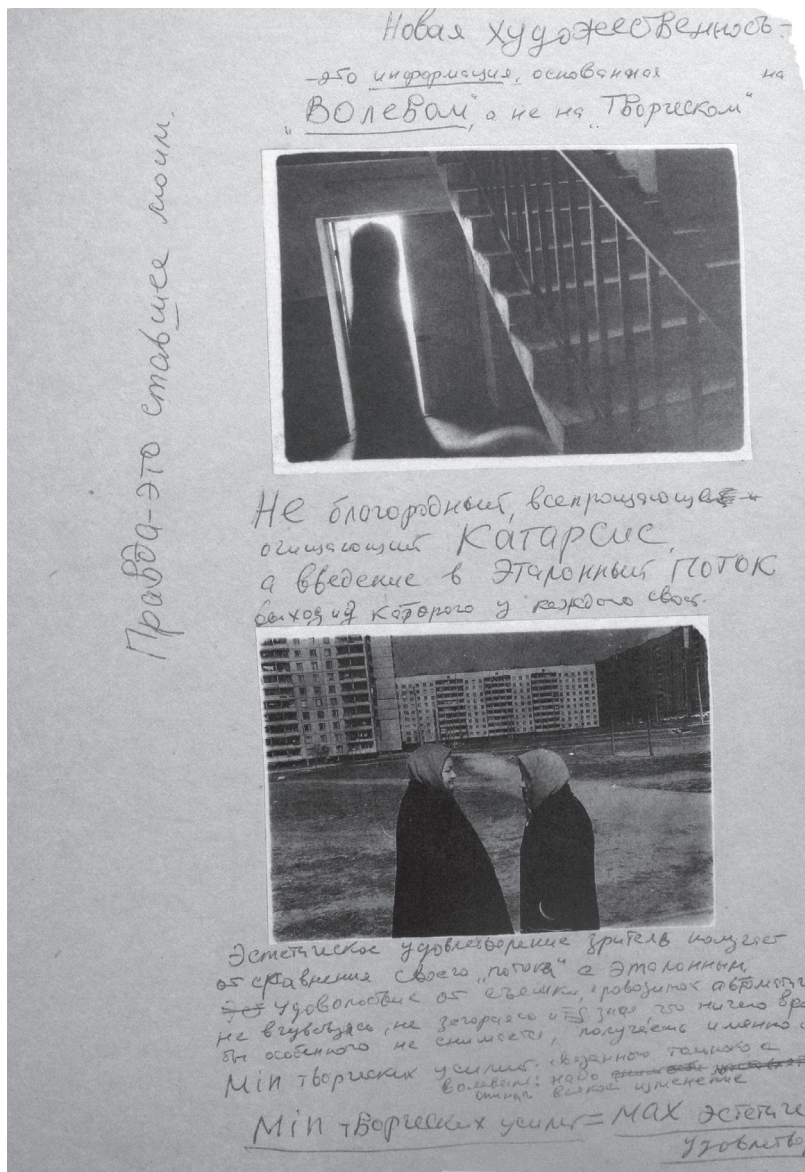 Новая художественность-
-это информация, основанная на
"Волевом", а не на "Творческом"
Правда-это ставшее моим.
Не благородный, всепрощающе-
очищающий Катарсис,
а введение в Эталонный поток
выход из которого у каждого свой.
Эстетическое удовлетворение зритель получает
от сравнения своего "потока" с Эталонным
Удовольствие от съёмки, проводимой автоматич
не вчувствуясь, не загораясь и зная, что ничего вро
бы особенного не снимаешь, получаешь именно
Min творческих усилий, связанного только с
волевым: надо
всякое изменение
Min творческих усилий = мах эстетиче
удовлетво